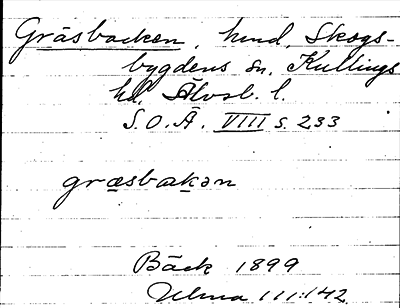 Gräsbacken, hmd, Skogs-
bygdens sn, Kullings
hd, Älvsb. l.
S.O.Ä. VIII s. 233
græsbakən
Bäck 1899
Ulma 111:142